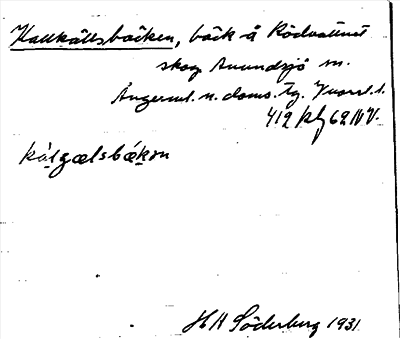 Kallkällsbäcken, bäck å Rödvattnet
skog Anundsjö sn.
Ångerml. n. doms. tg. Kvarsl. 1.
412 kfg 62 IV V.
kálgælsbækɔn
H H Söderberg 1931